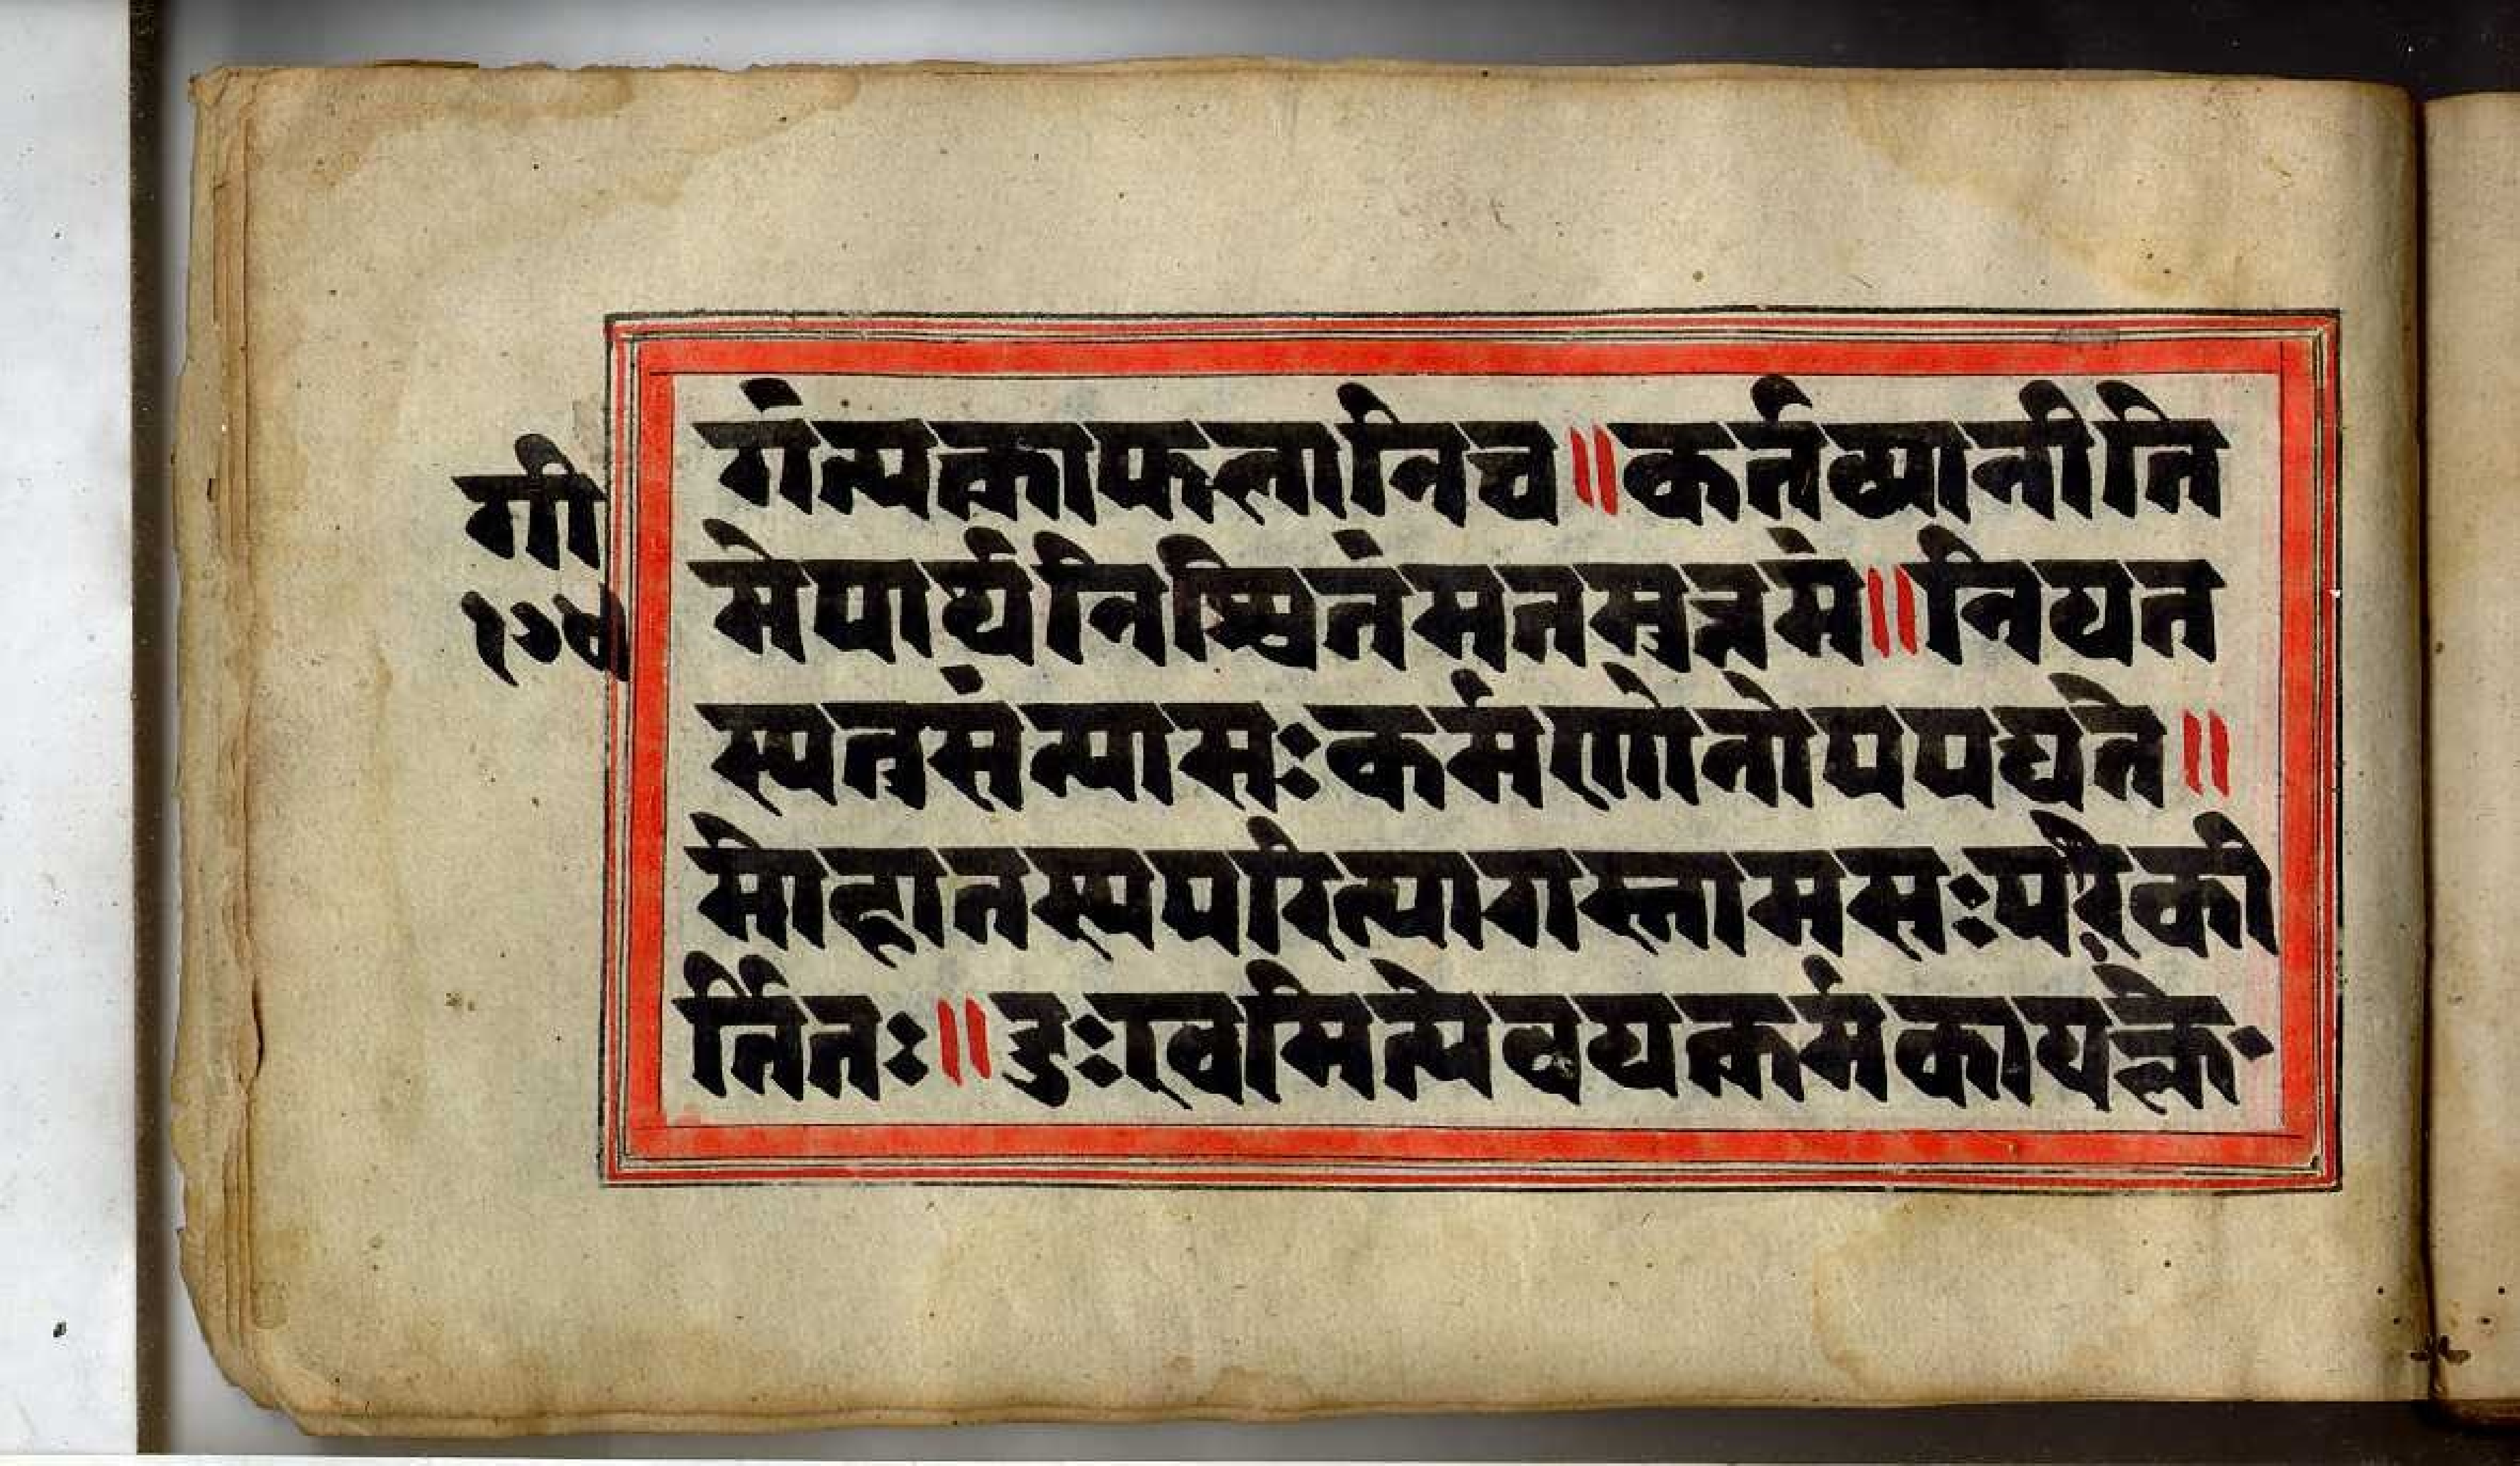 गी
१७४
गंत्यक्ताफलानिच॥कर्तव्यानीति
मेपार्थनिश्चितंमतमुत्तमं॥नियत
स्यतुसंन्यासःकर्मणोनोपपद्यते॥
मोहात्तस्यपरित्यागस्तामसःपरिकी
र्तितः॥दुःखमित्येवयत्कर्मकायक्ले